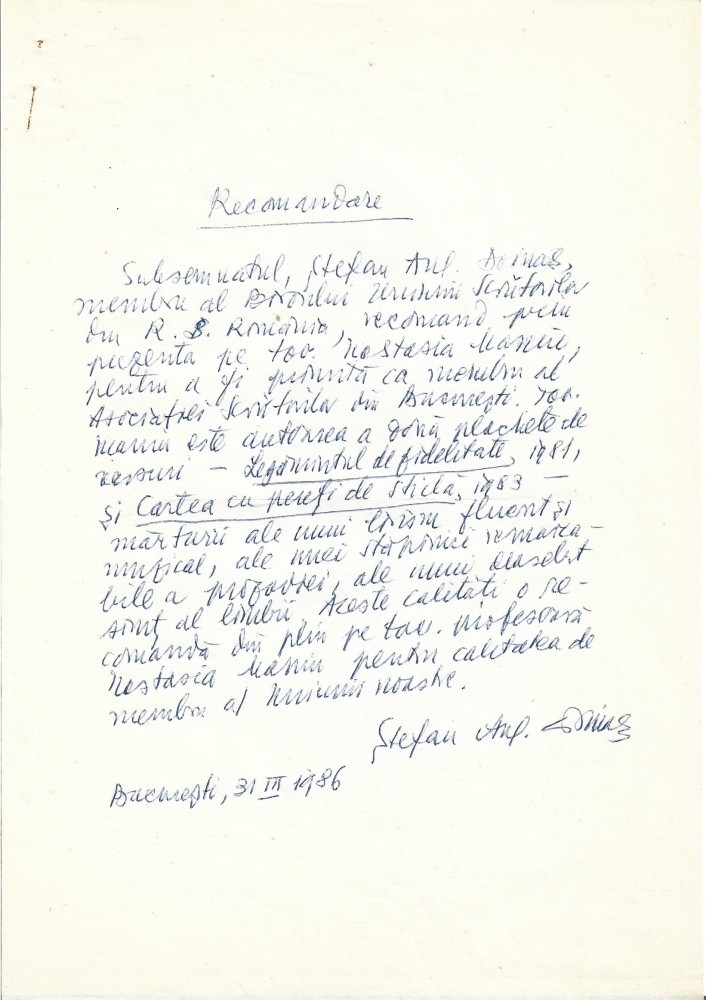 Recomandare
Subsemnatul, Ștefan Aug. Doinaș,
membru al Biroului Uniunii Scriitorilor
din R. S. România, recomand prin
prezenta pe tov. Nastasia Maniu,
pentru a fi primită ca membru al
Asociației Scriitorilor din București. Tov.
Maniu este autoarea a două plachete de
versuri – Legămîntul de fidelitate, 1981,
și Cartea cu pereți de sticlă, 1983 –
mărturii ale unui lirism fluent și
muzical, ale unei stăpîniri remarca-
bile a prozodiei, ale unui deosebit
simț al limbii. Aceste calități o re-
comandă din plin pe tov. profesoară
Nastasia Maniu pentru calitatea de
membru al Uniunii noastre.
Ștefan Aug. Doinaș
București, 31 III 1986